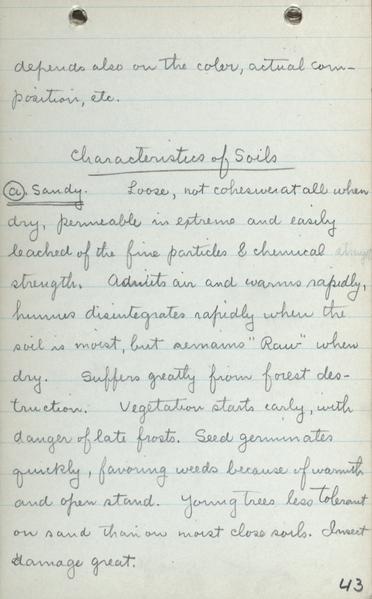 depends also on the color, actual com-
position, etc.
Characteristics of Soils
(a). Sandy. Loose, not cohesive at all when
dry, permeable in extreme and easily
leached of the fine particles & chemical
strength. Admits air and warms rapidly,
humus disintegrates rapidly when the
soil is moist, but remains "Raw" when
dry. Suffers greatly from forest des-
truction. Vegetation starts early, with
danger of late frosts. Seed germinates
quickly, favoring weeds because of warmth
and open stand. Young trees less tolerant
on sand than on moist close soils. Insect
damage great.
43